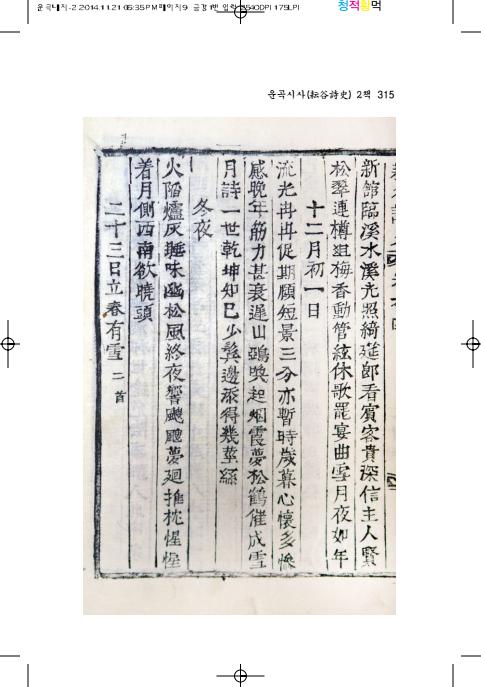 운곡시사(耘谷詩史) 2책 315
新館臨溪水溪光照綺筵郎看賓客貴深信主人賢
松翠連樽俎梅香動管絃休歌罷宴曲雪月夜如年
十二月初一日
流光冉冉促期頤短景三分亦暫時歲暮心懷多慘
感晩年筋力甚衰遲山鷄奬起烟霞夢松鶴催成雪
月詩一世乾坤知已少鬓邊添得幾莖絲
冬夜
火陷爐灰睡味幽松風終夜響颼颼夢廻推枕惺惺
着月側西南欲曉頭
二十三日立春有雪 二首